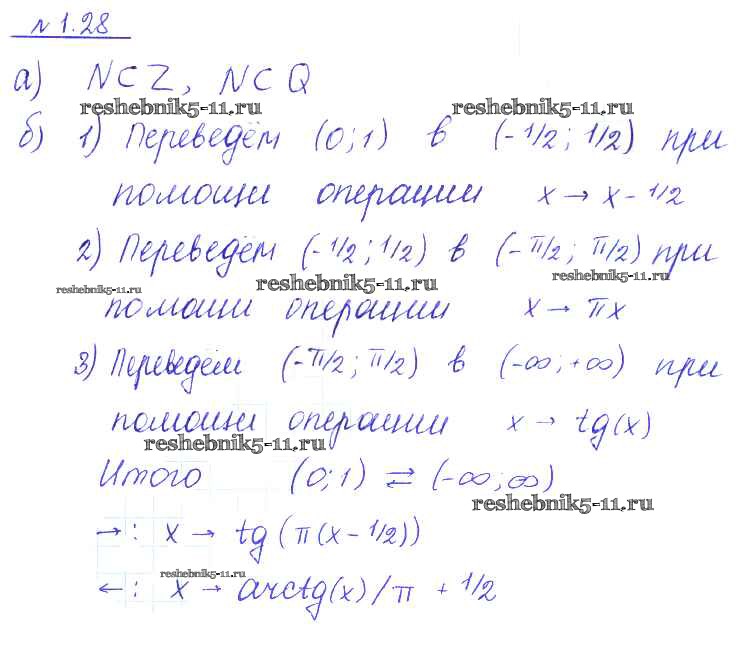 № 1.28
а) N⊂Z, N⊂Q
reshebnik5-11.ru reshebnik5-11.ru
б) 1) Переведём (0;1) в (-1/2; 1/2) при
помощи операции x → x - 1/2
2) Переведём (-1/2; 1/2) в (-π/2; π/2) при
reshebnik5-11.ru reshebnik5-11.ru reshebnik5-11.ru
помощи операции x → πx
3) Переведём (-π/2; π/2) в (-∞; +∞) при
помощи операции x → tg(x)
reshebnik5-11.ru
Итого (0;1) ⇄ (-∞;∞)
reshebnik5-11.ru
→: x → tg(π(x-1/2))
reshebnik5-11.ru
←: x → arctg(x)/π + 1/2